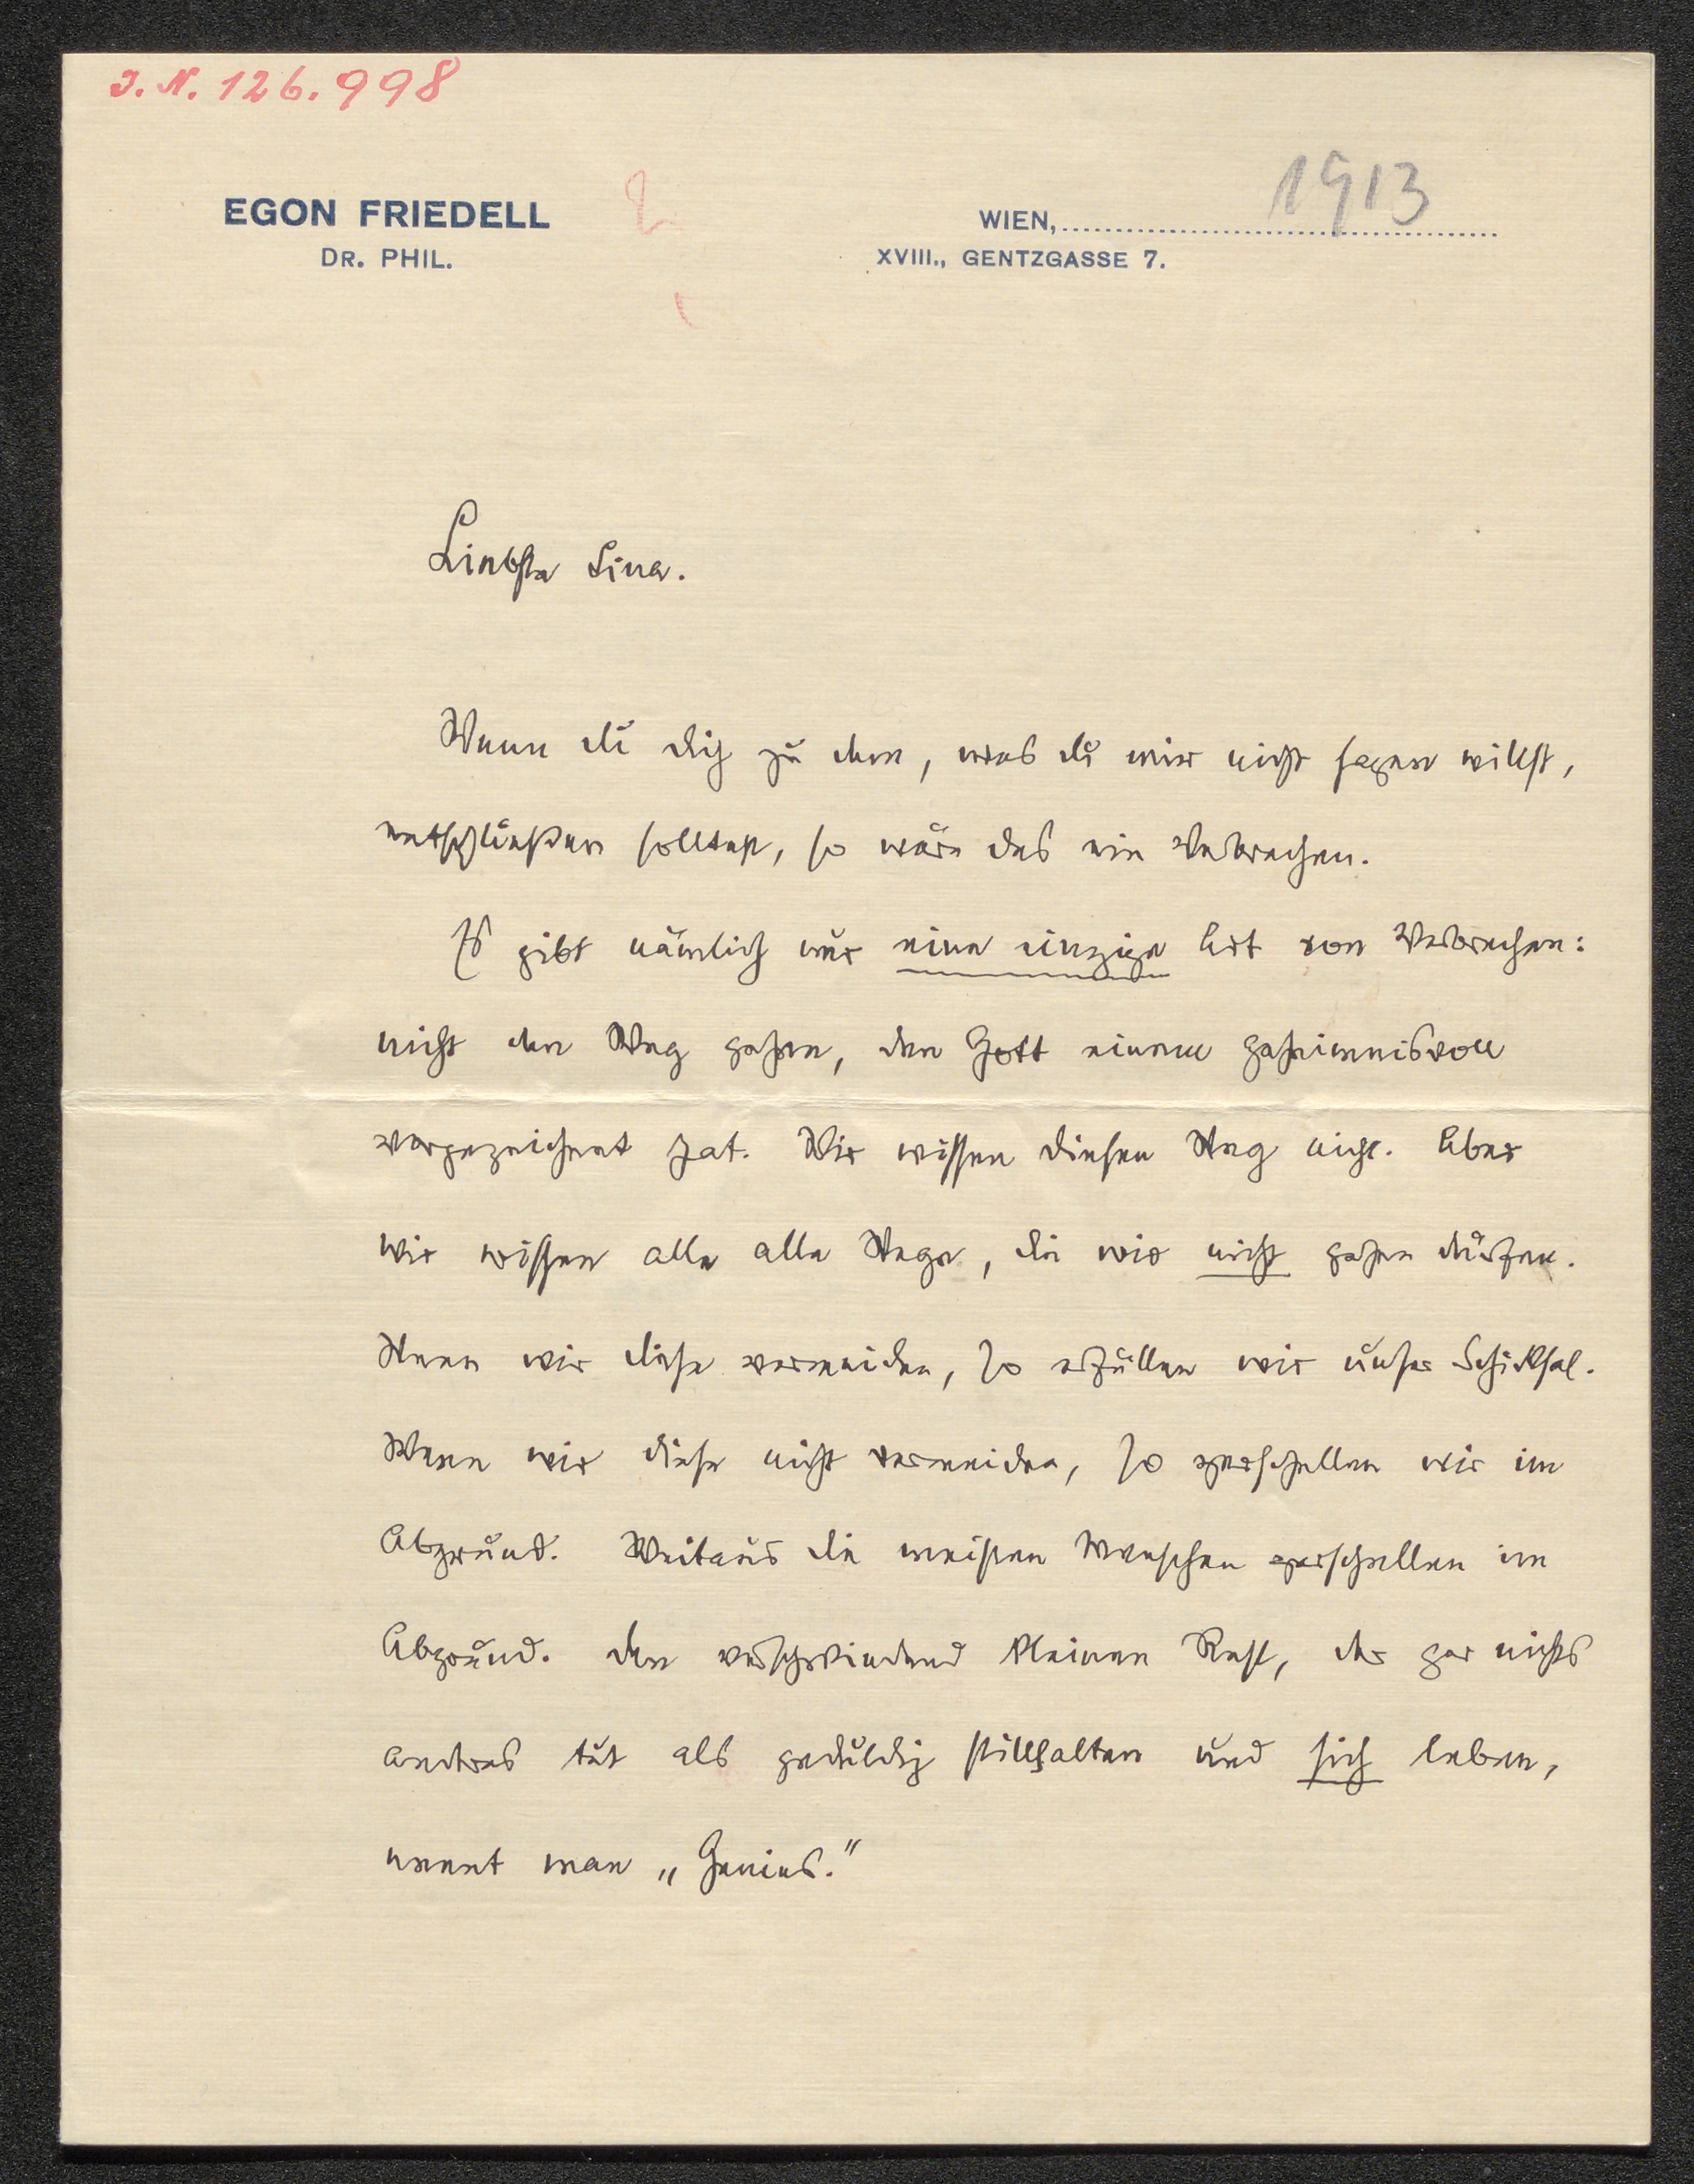 I. N. 126.998
1913
EGON FRIEDELL
DR. PHIL.
WIEN,
XVIII., GENTZGASSE 7.
Liebste Lina.
Wenn du dich zu dem, was du mir nicht sagen willst,
entschließen solltest, so wäre das ein Verbrechen.
Es gibt nämlich nur eine einzige Art von Verbrechen:
nicht den Weg gehen, den Gott einem geheimnisvoll
vorgezeichnet hat. Wir wissen diesen Weg nicht. Aber
wir wissen alle alle Wege, die wir nicht gehen dürfen.
Wenn wir diese vermeiden, so erfüllen wir unser Schicksal.
Wenn wir diese nicht vermeiden, so zerschellen wir im
Abgrund. Weitaus die meisten Menschen zerschellen im
Abgrund. Den verschwindend kleinen Rest, der gar nichts
andres tut als geduldig stillhalten und sich leben,
nennt man „Genies."